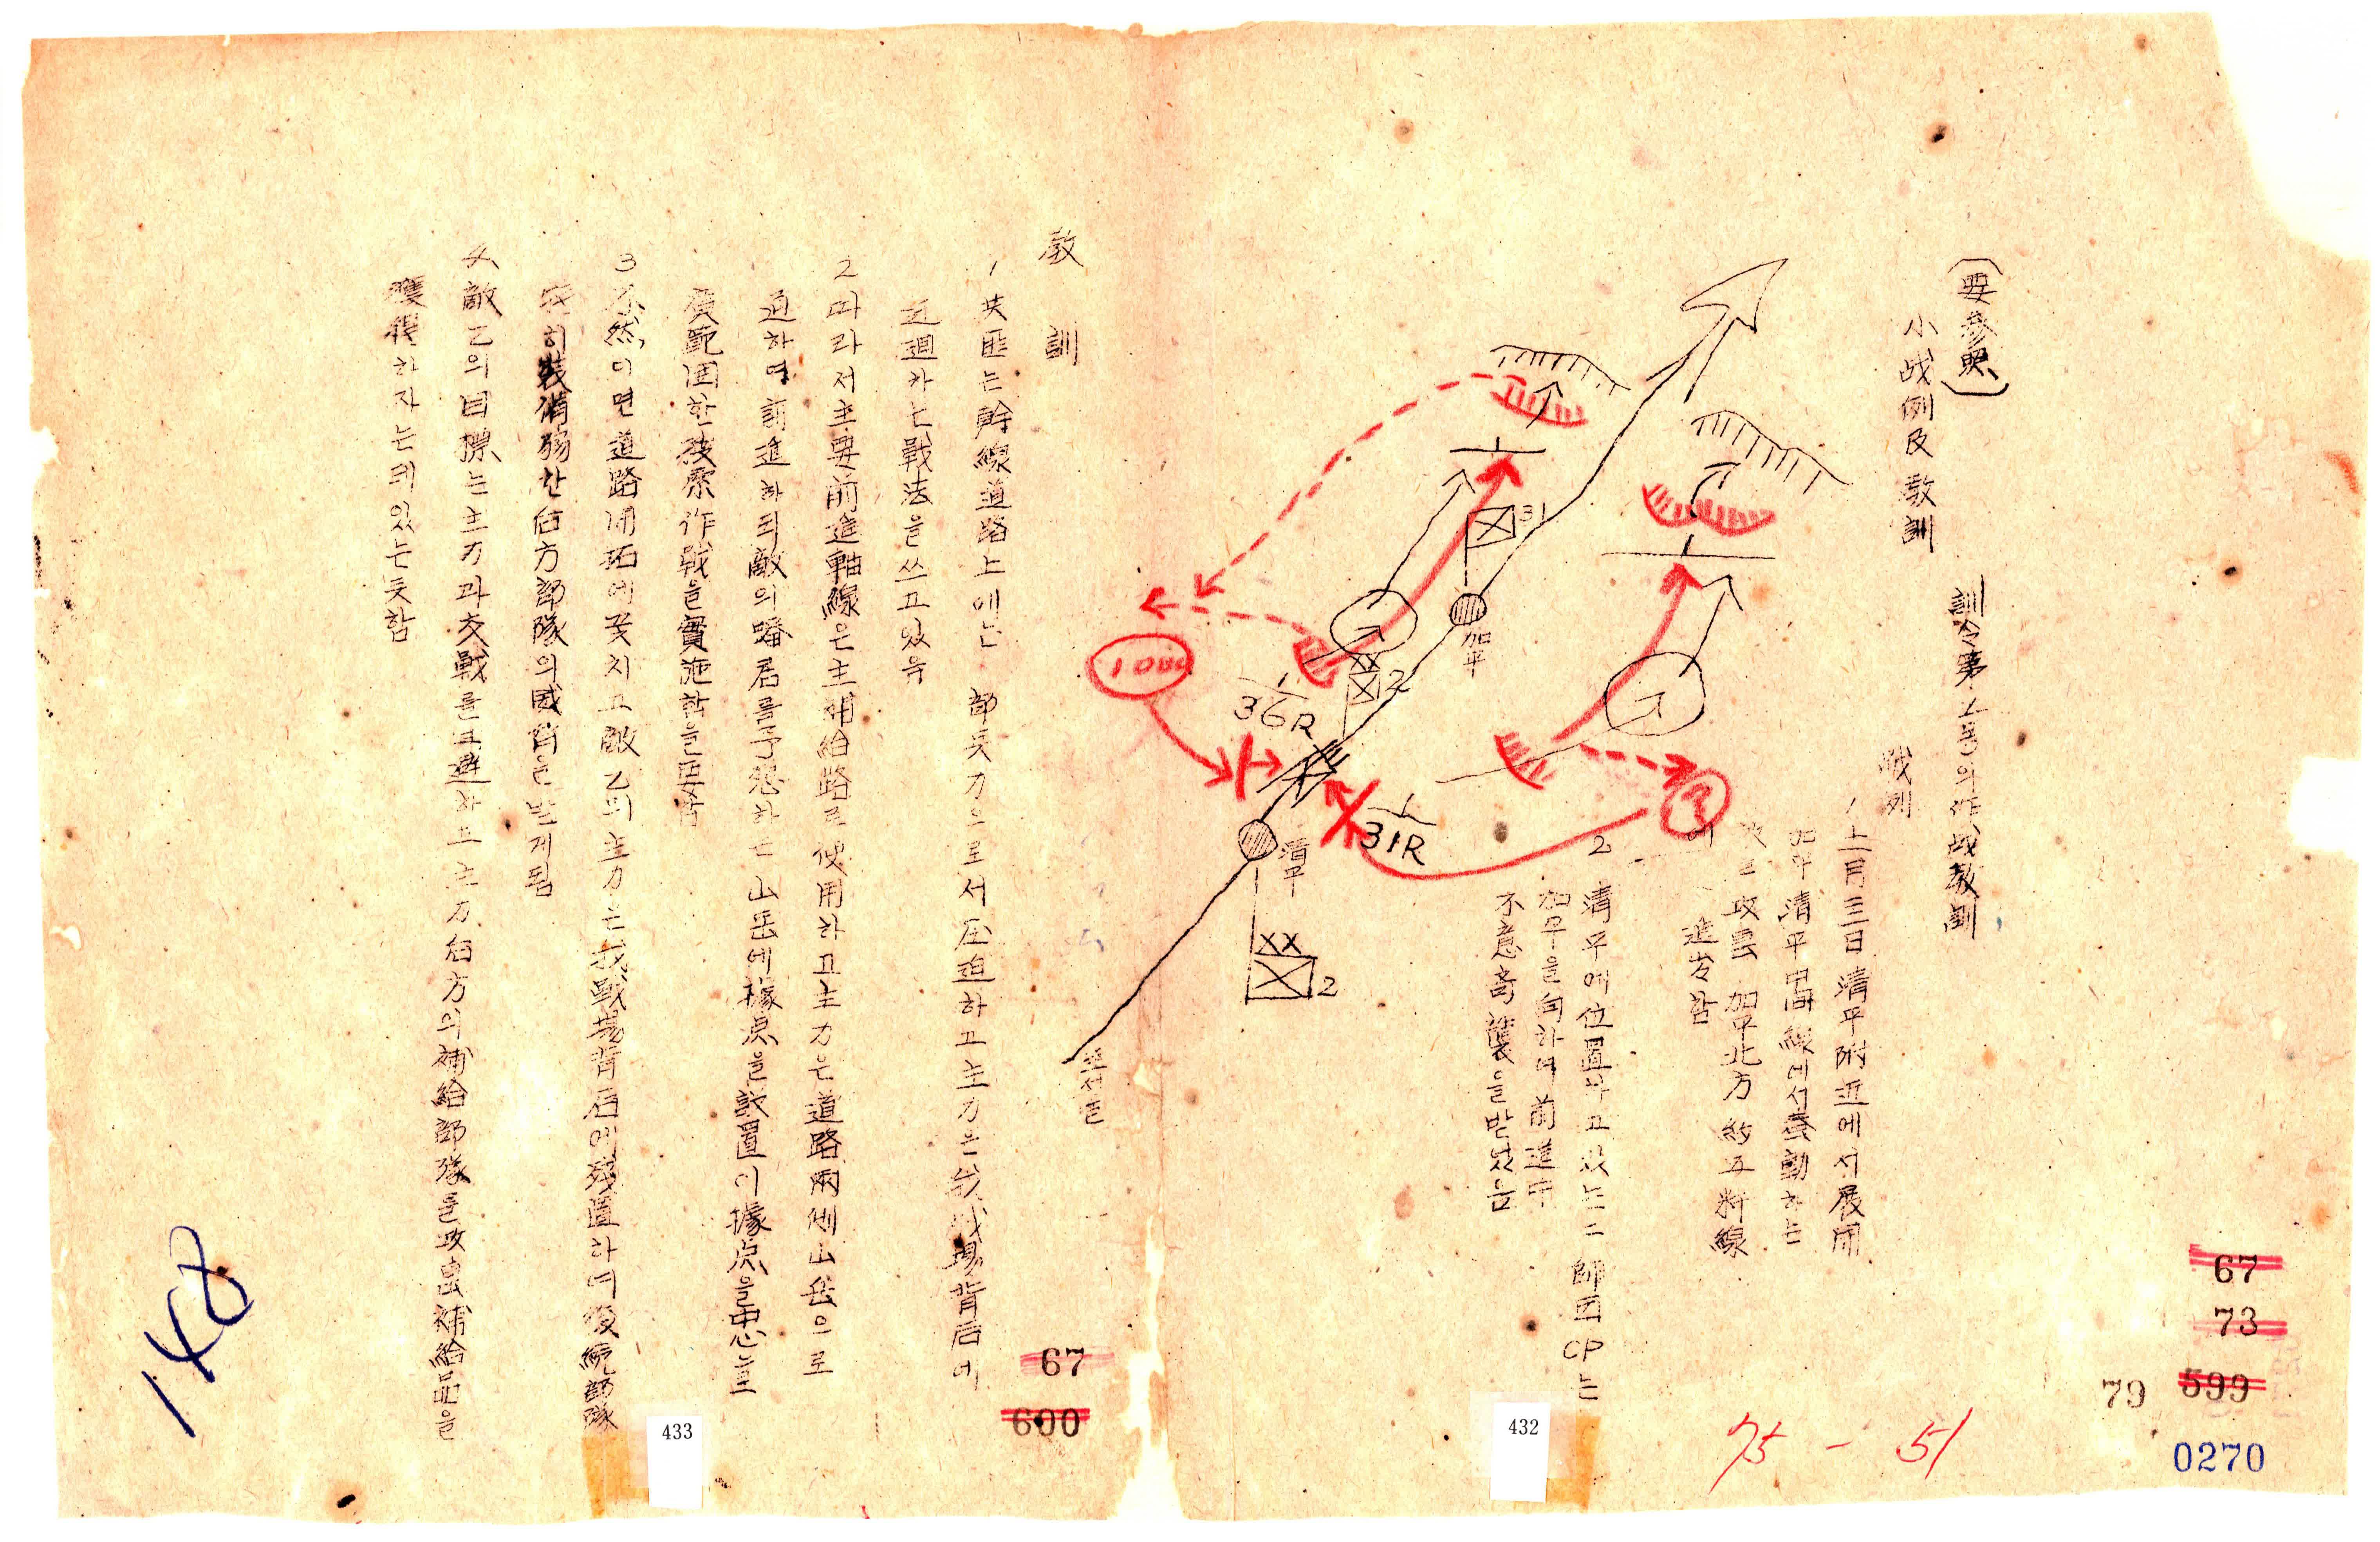 (要参照)
訓令第 호의 作战教訓
小战例及教訓
战列
1 十一月三日 清平附近에서 展開
加平 清平 中間線에서 蠢動하는
攻擊 加平北方 約五粁線
에 進出함
2 清平에 位置하고 있는 二師団 CP는
加平을 向하여 前進中
不意奇襲을 받었음
31
加平
2
1000
1
36R
1
31R
清平
2
教訓
1 共匪는 幹線道路上에는 一部兵力으로서 压迫하고 主力은 我战場背后에
迂廻하는 戰法을 쓰고 있음
2 따라서 主要前進軸線은 主補給路로 使用하고 主力은 道路兩側山岳으로
通하며 前進하되 敵의 蟠居를 予想하는 山岳에 據点을 設置 이 據点을 中心으로
廣範囲한 搜索作戰을 實施함을 要함
3 不然이면 道路開拓에 끛치고 敵 乙의 主力은 我戰場背后에 殘置하여 後続部隊
特히 裝備弱한 后方部隊의 威脅을 받게 됨
4 敵 乙의 目標는 主力과 交戰를 回避하고 主力 后方의 補給部隊를 攻击 補給品을
獲得하자는데 있는 듯함
67
73
599
79
0270
75 - 51
432
67
600
433
148